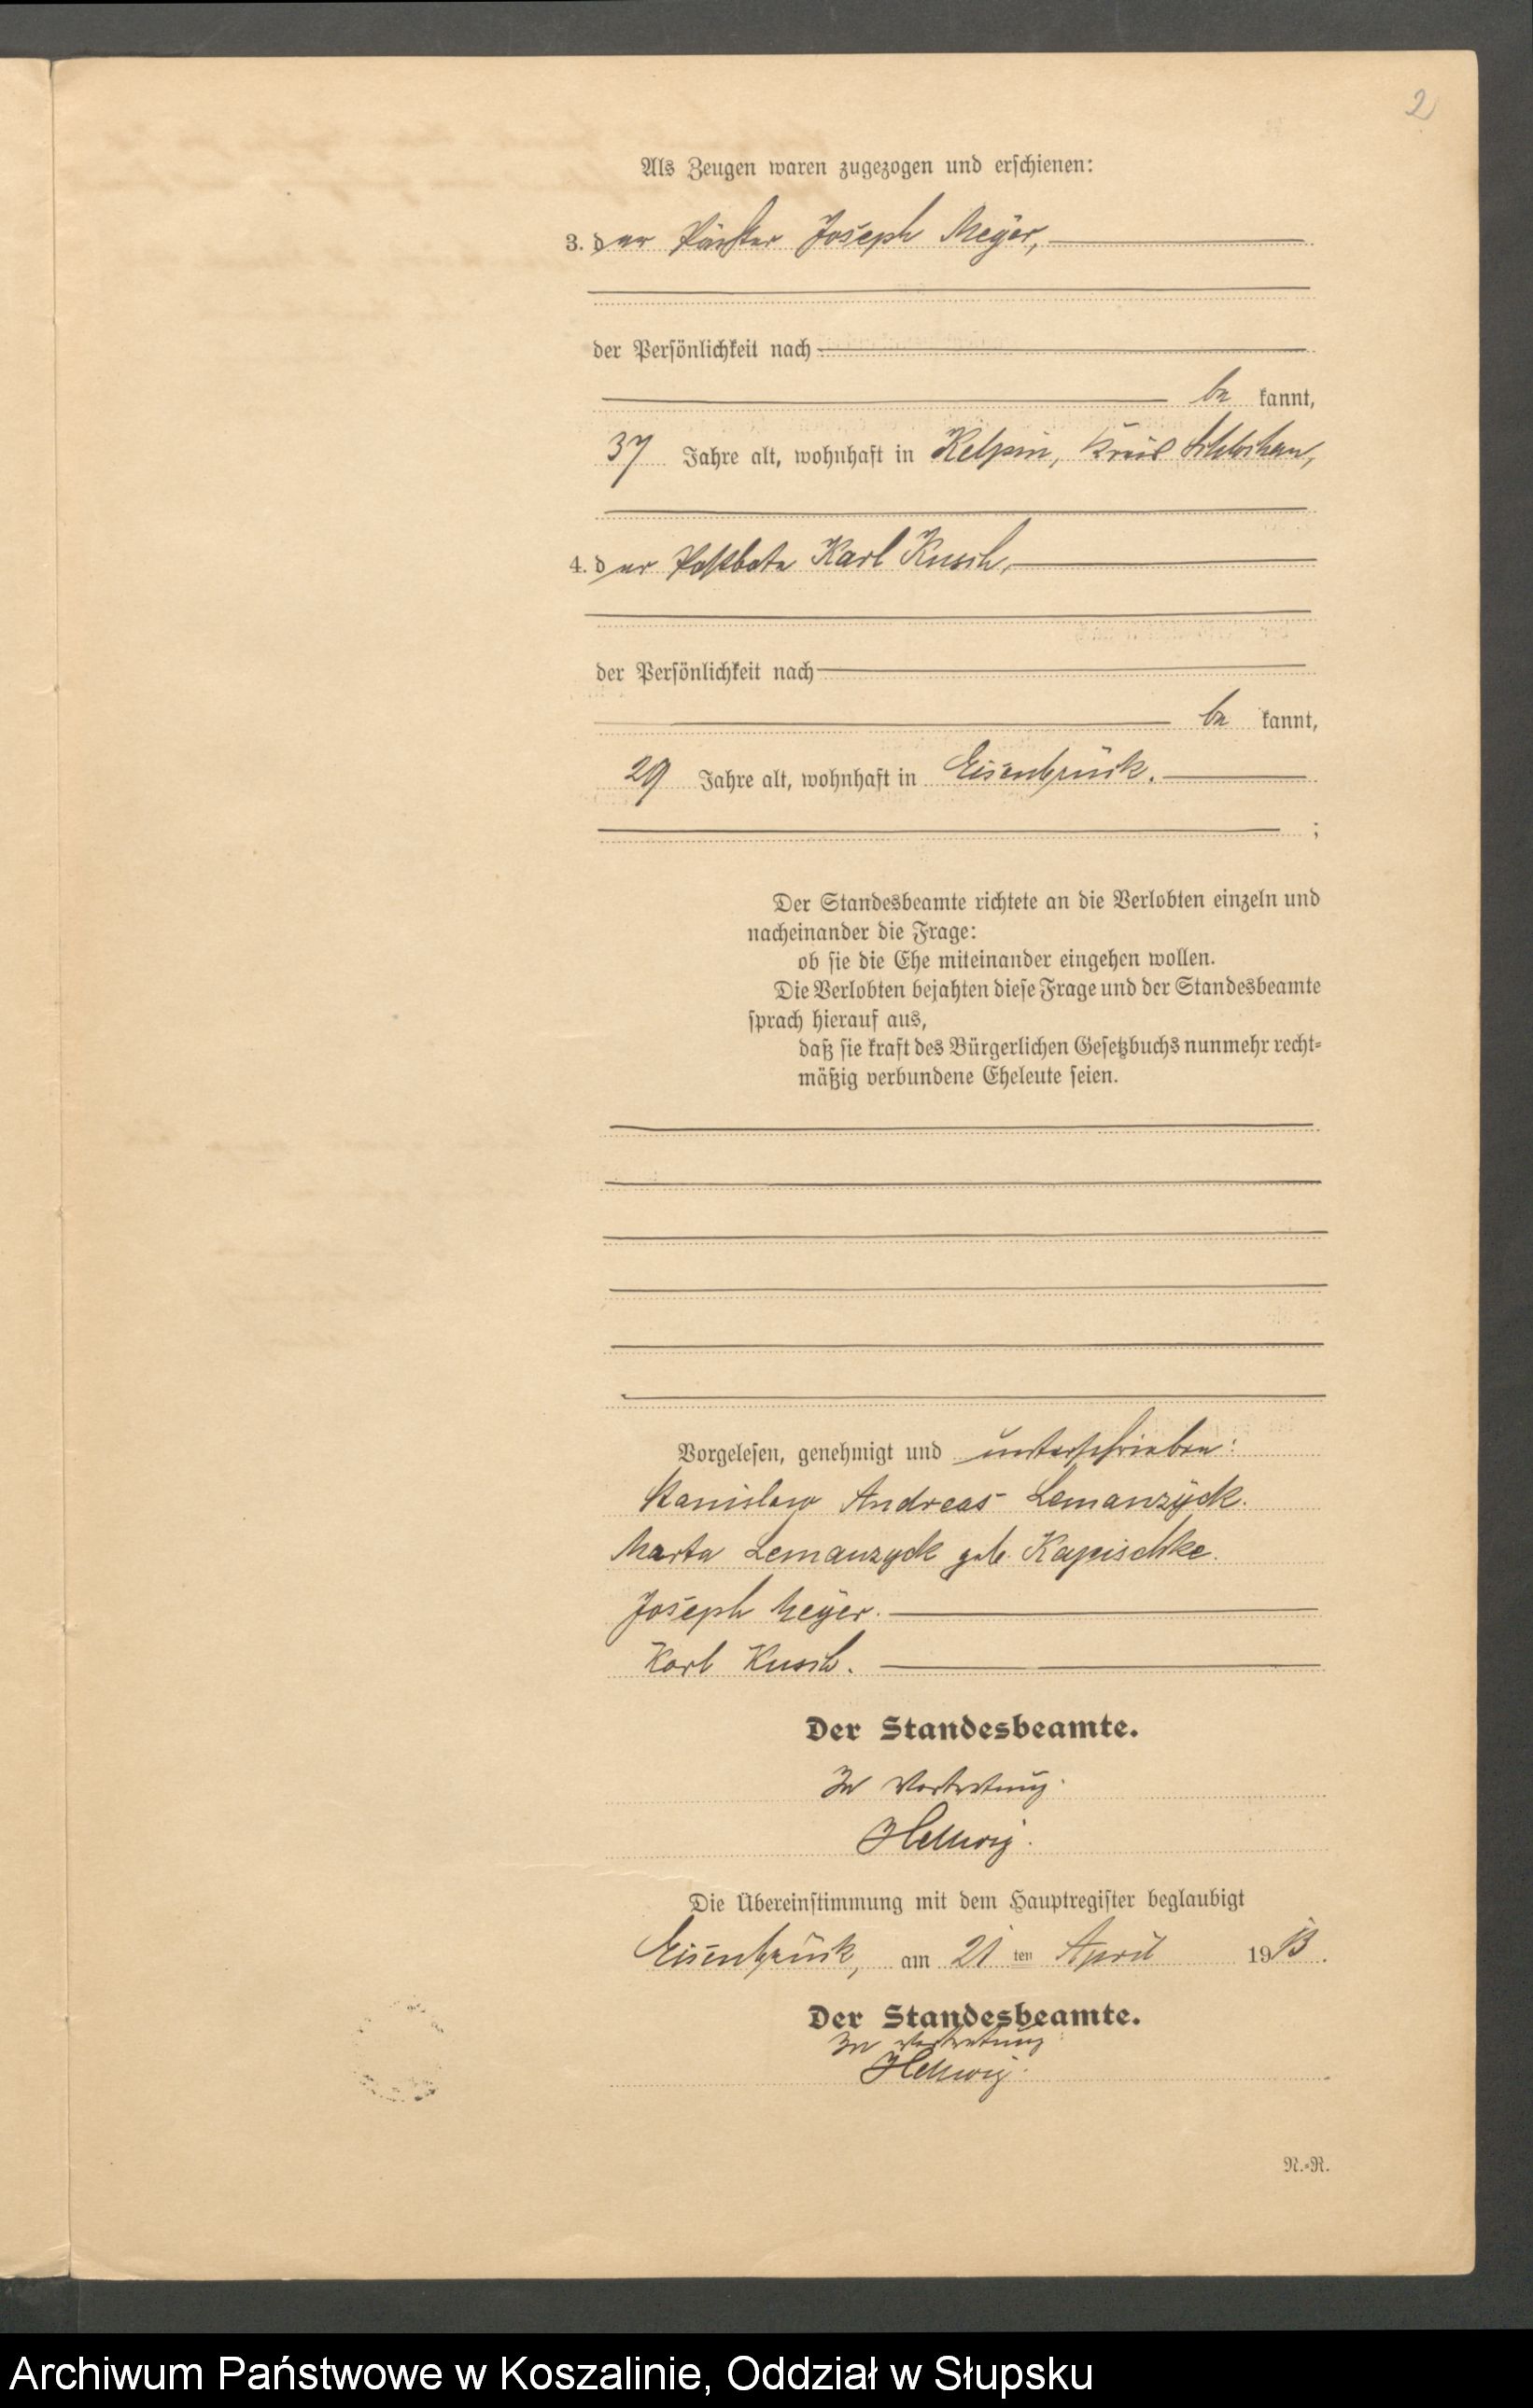 2
Als Zeugen waren zugezogen und erschienen:
3. der Pächter Joseph Meyer,
der Persönlichkeit nach
be kannt,
37 Jahre alt, wohnhaft in Kelpin, Kreis Schlochau,
4. der Postbote Karl Kusch,
der Persönlichkeit nach
be kannt,
29 Jahre alt, wohnhaft in Eisenbrück.
;
Der Standesbeamte richtete an die Verlobten einzeln und
nacheinander die Frage:
ob sie die Ehe miteinander eingehen wollen.
Die Verlobten bejahten diese Frage und der Standesbeamte
sprach hierauf aus,
daß sie kraft des Bürgerlichen Gesetzbuchs nunmehr recht-
mäßig verbundene Eheleute seien.
Vorgelesen, genehmigt und unterschrieben:
Stanislaw Andreas Lemanzyck.
Marta Lemanzyck geb. Kapischke.
Joseph Meyer.
Karl Kusch.
Der Standesbeamte.
In Vertretung.
Hellwig.
Die Übereinstimmung mit dem Hauptregister beglaubigt
Eisenbrück, am 21 ten April 1913.
Der Standesbeamte.
In Vertretung:
Hellwig.
N.-R.
Archiwum Państwowe w Koszalinie, Oddział w Słupsku